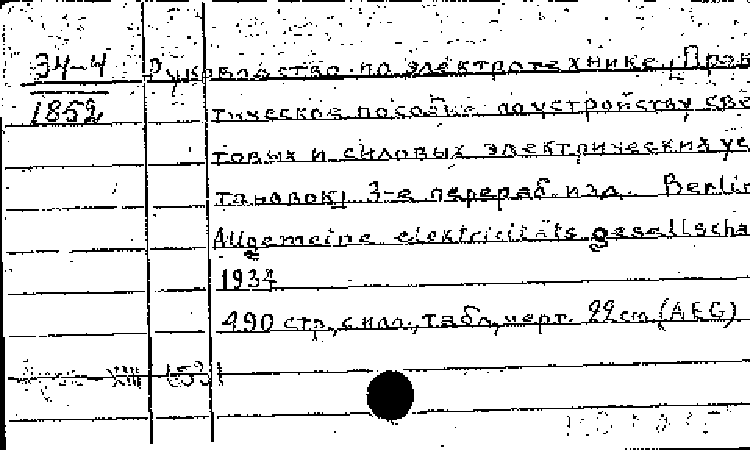 34-4
1852
Руководство по электротехнике, Прак
тическое пособие по устройству све
товых и силовых электрических ус
тановок, 3-е перераб. изд. Berlin
Allgemeine elektricitäts gesellscha
1934
490 стр, с илл., табл, черт. 22 cm, (AEG)
XIII 1531